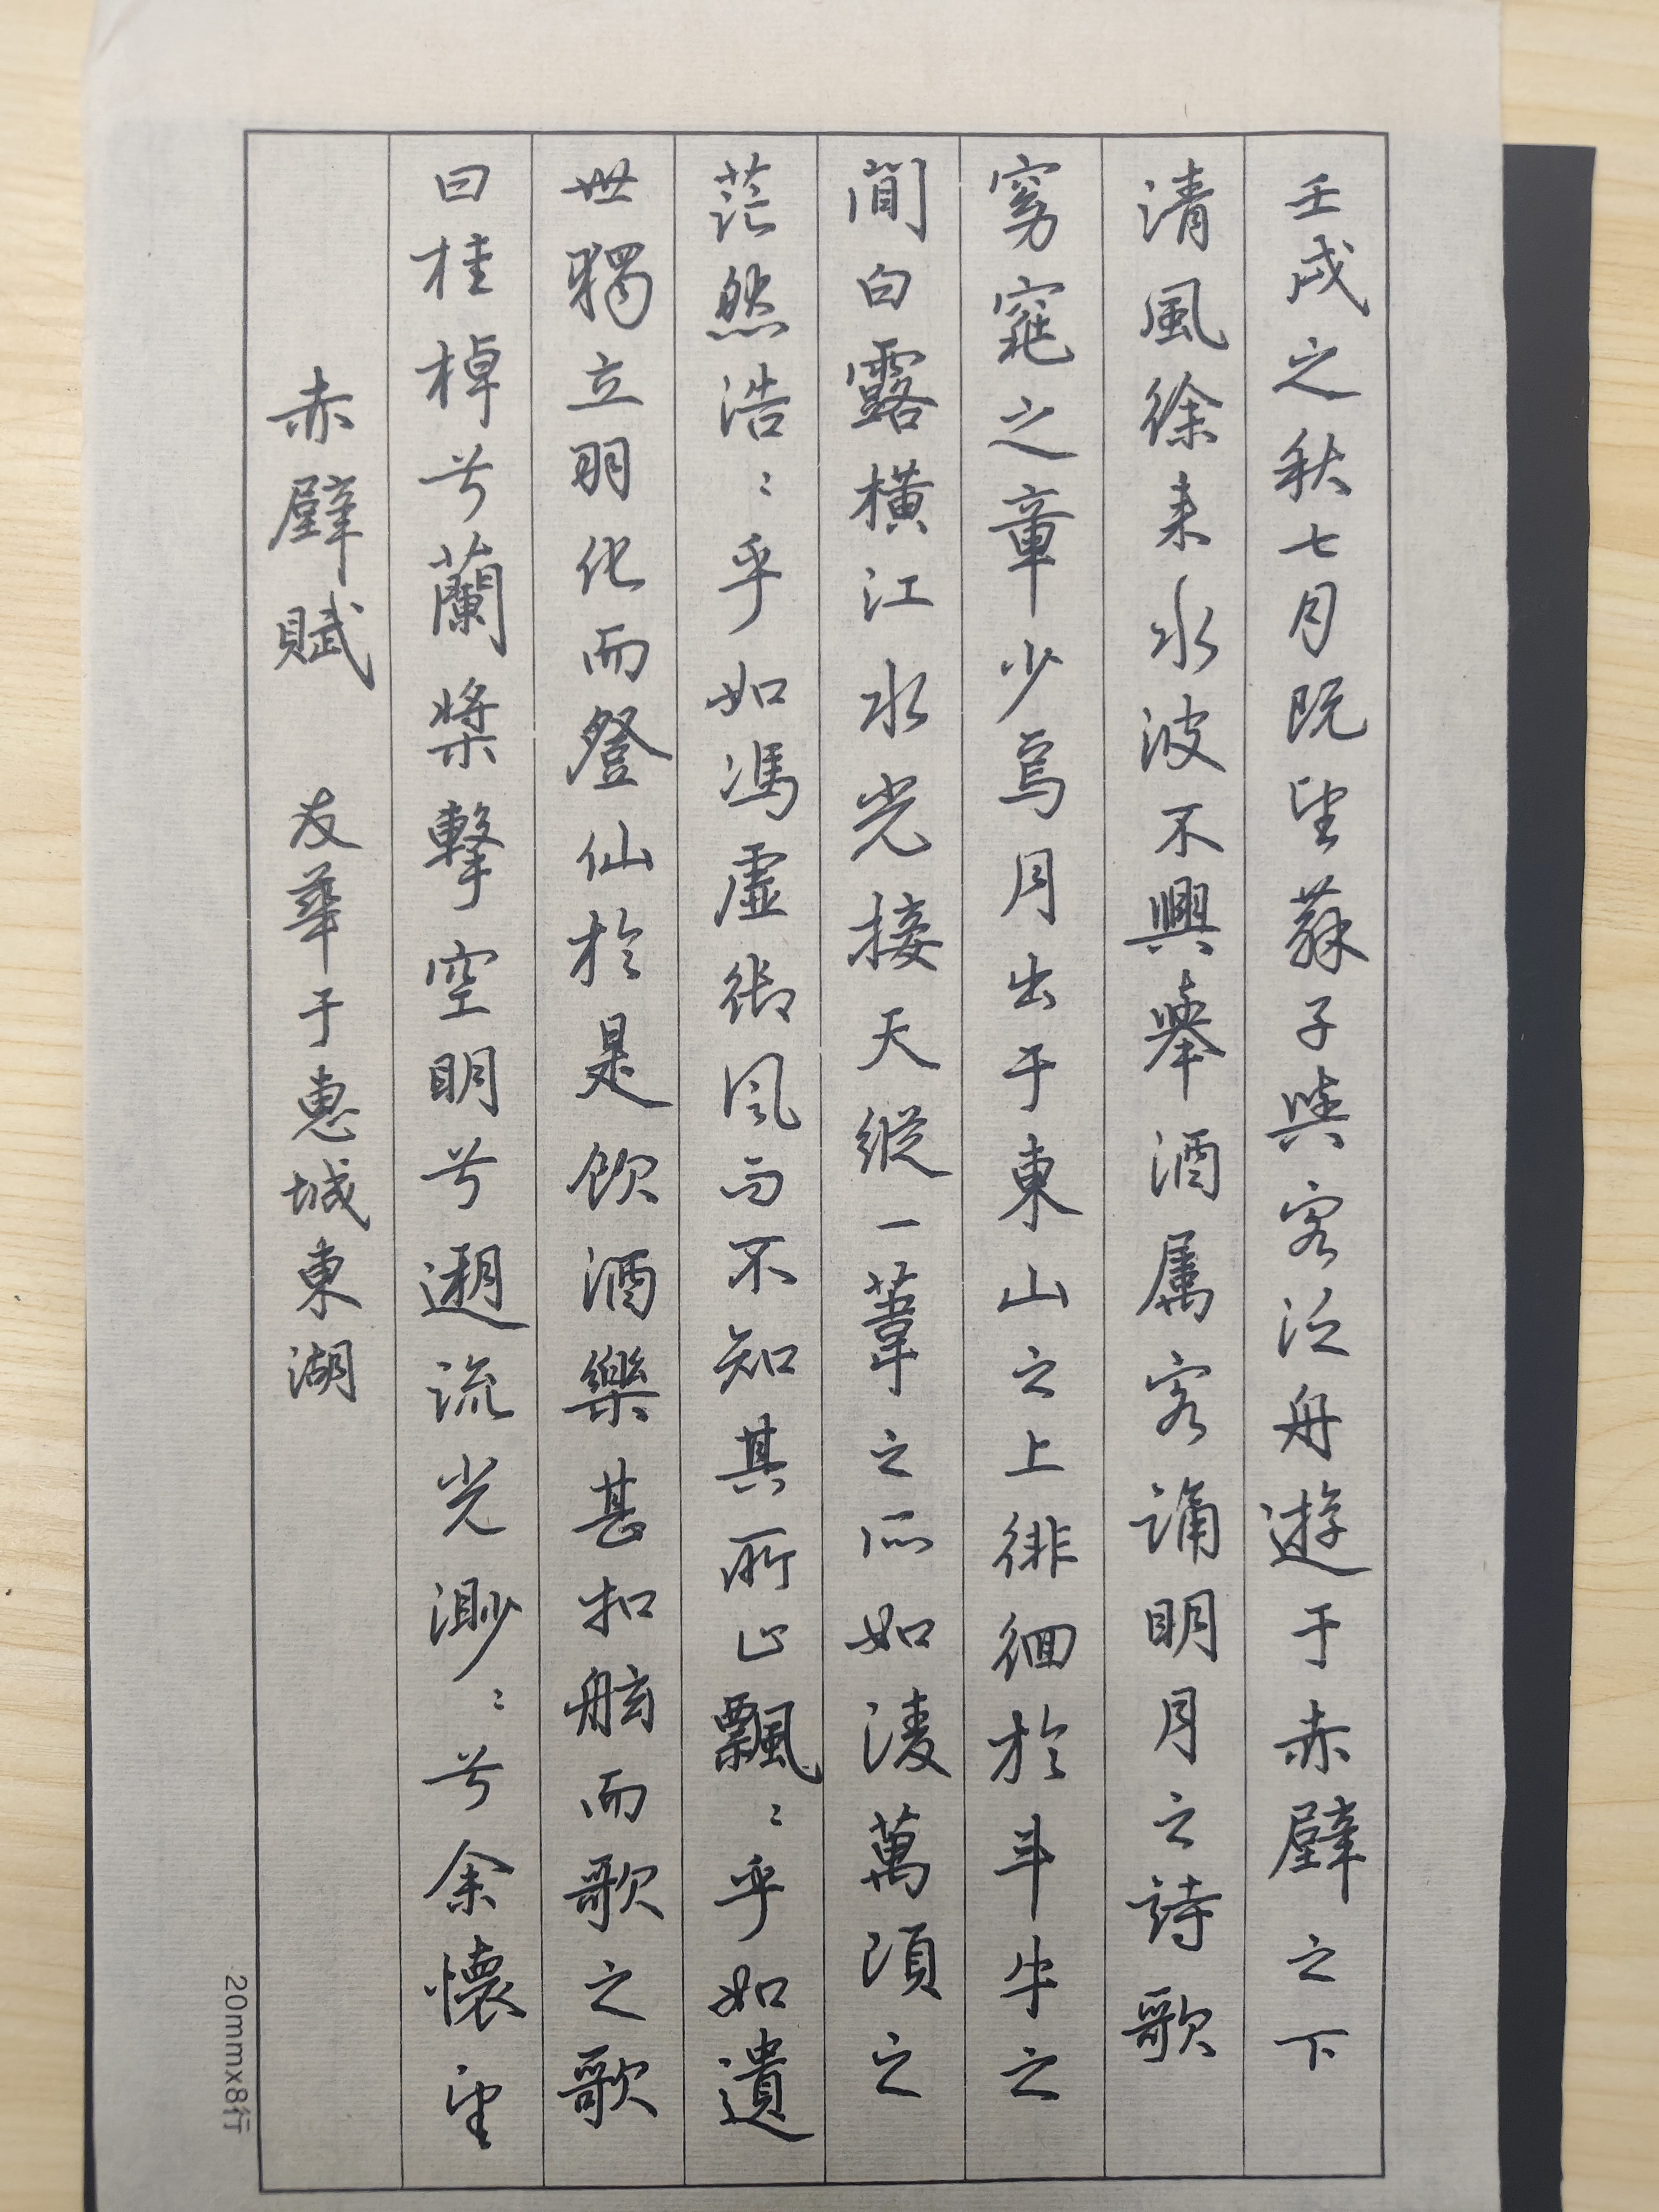 壬戌之秋七月既望蘇子與客泛舟遊于赤壁之下
清風徐來水波不興舉酒属客誦明月之詩歌
窈窕之章少焉月出于東山之上徘徊於斗牛之
間白露橫江水光接天縱一葦之所如淩萬頃之
茫然浩〻乎如馮虛御風而不知其所止飄〻乎如遺
世獨立羽化而登仙於是飲酒樂甚扣舷而歌之歌
曰桂棹兮蘭槳擊空明兮遡流光渺〻兮余懷望
赤壁賦 友華于惠城東湖
20mmx8行